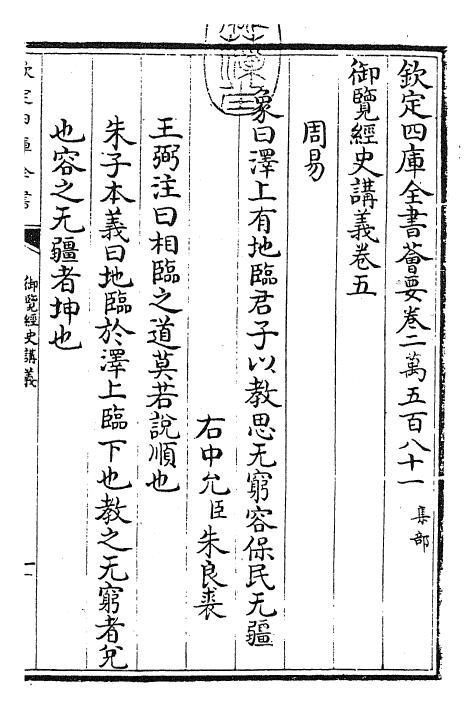 欽定四庫全書薈要卷二萬五百八十一 集部
御覽經史講義卷五
周易
象曰澤上有地臨君子以教思无窮容保民无疆
右中允臣朱良裘
王弼注曰相臨之道莫若說順也
朱子本義曰地臨於澤上臨下也教之无窮者兌
也容之无疆者坤也
欽定四庫全書
御覽經史講義
一